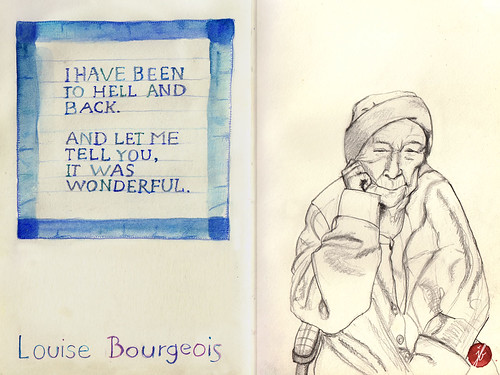 I HAVE BEEN
TO HELL AND
BACK.
AND LET ME
TELL YOU,
IT WAS
WONDERFUL.
Louise Bourgeois